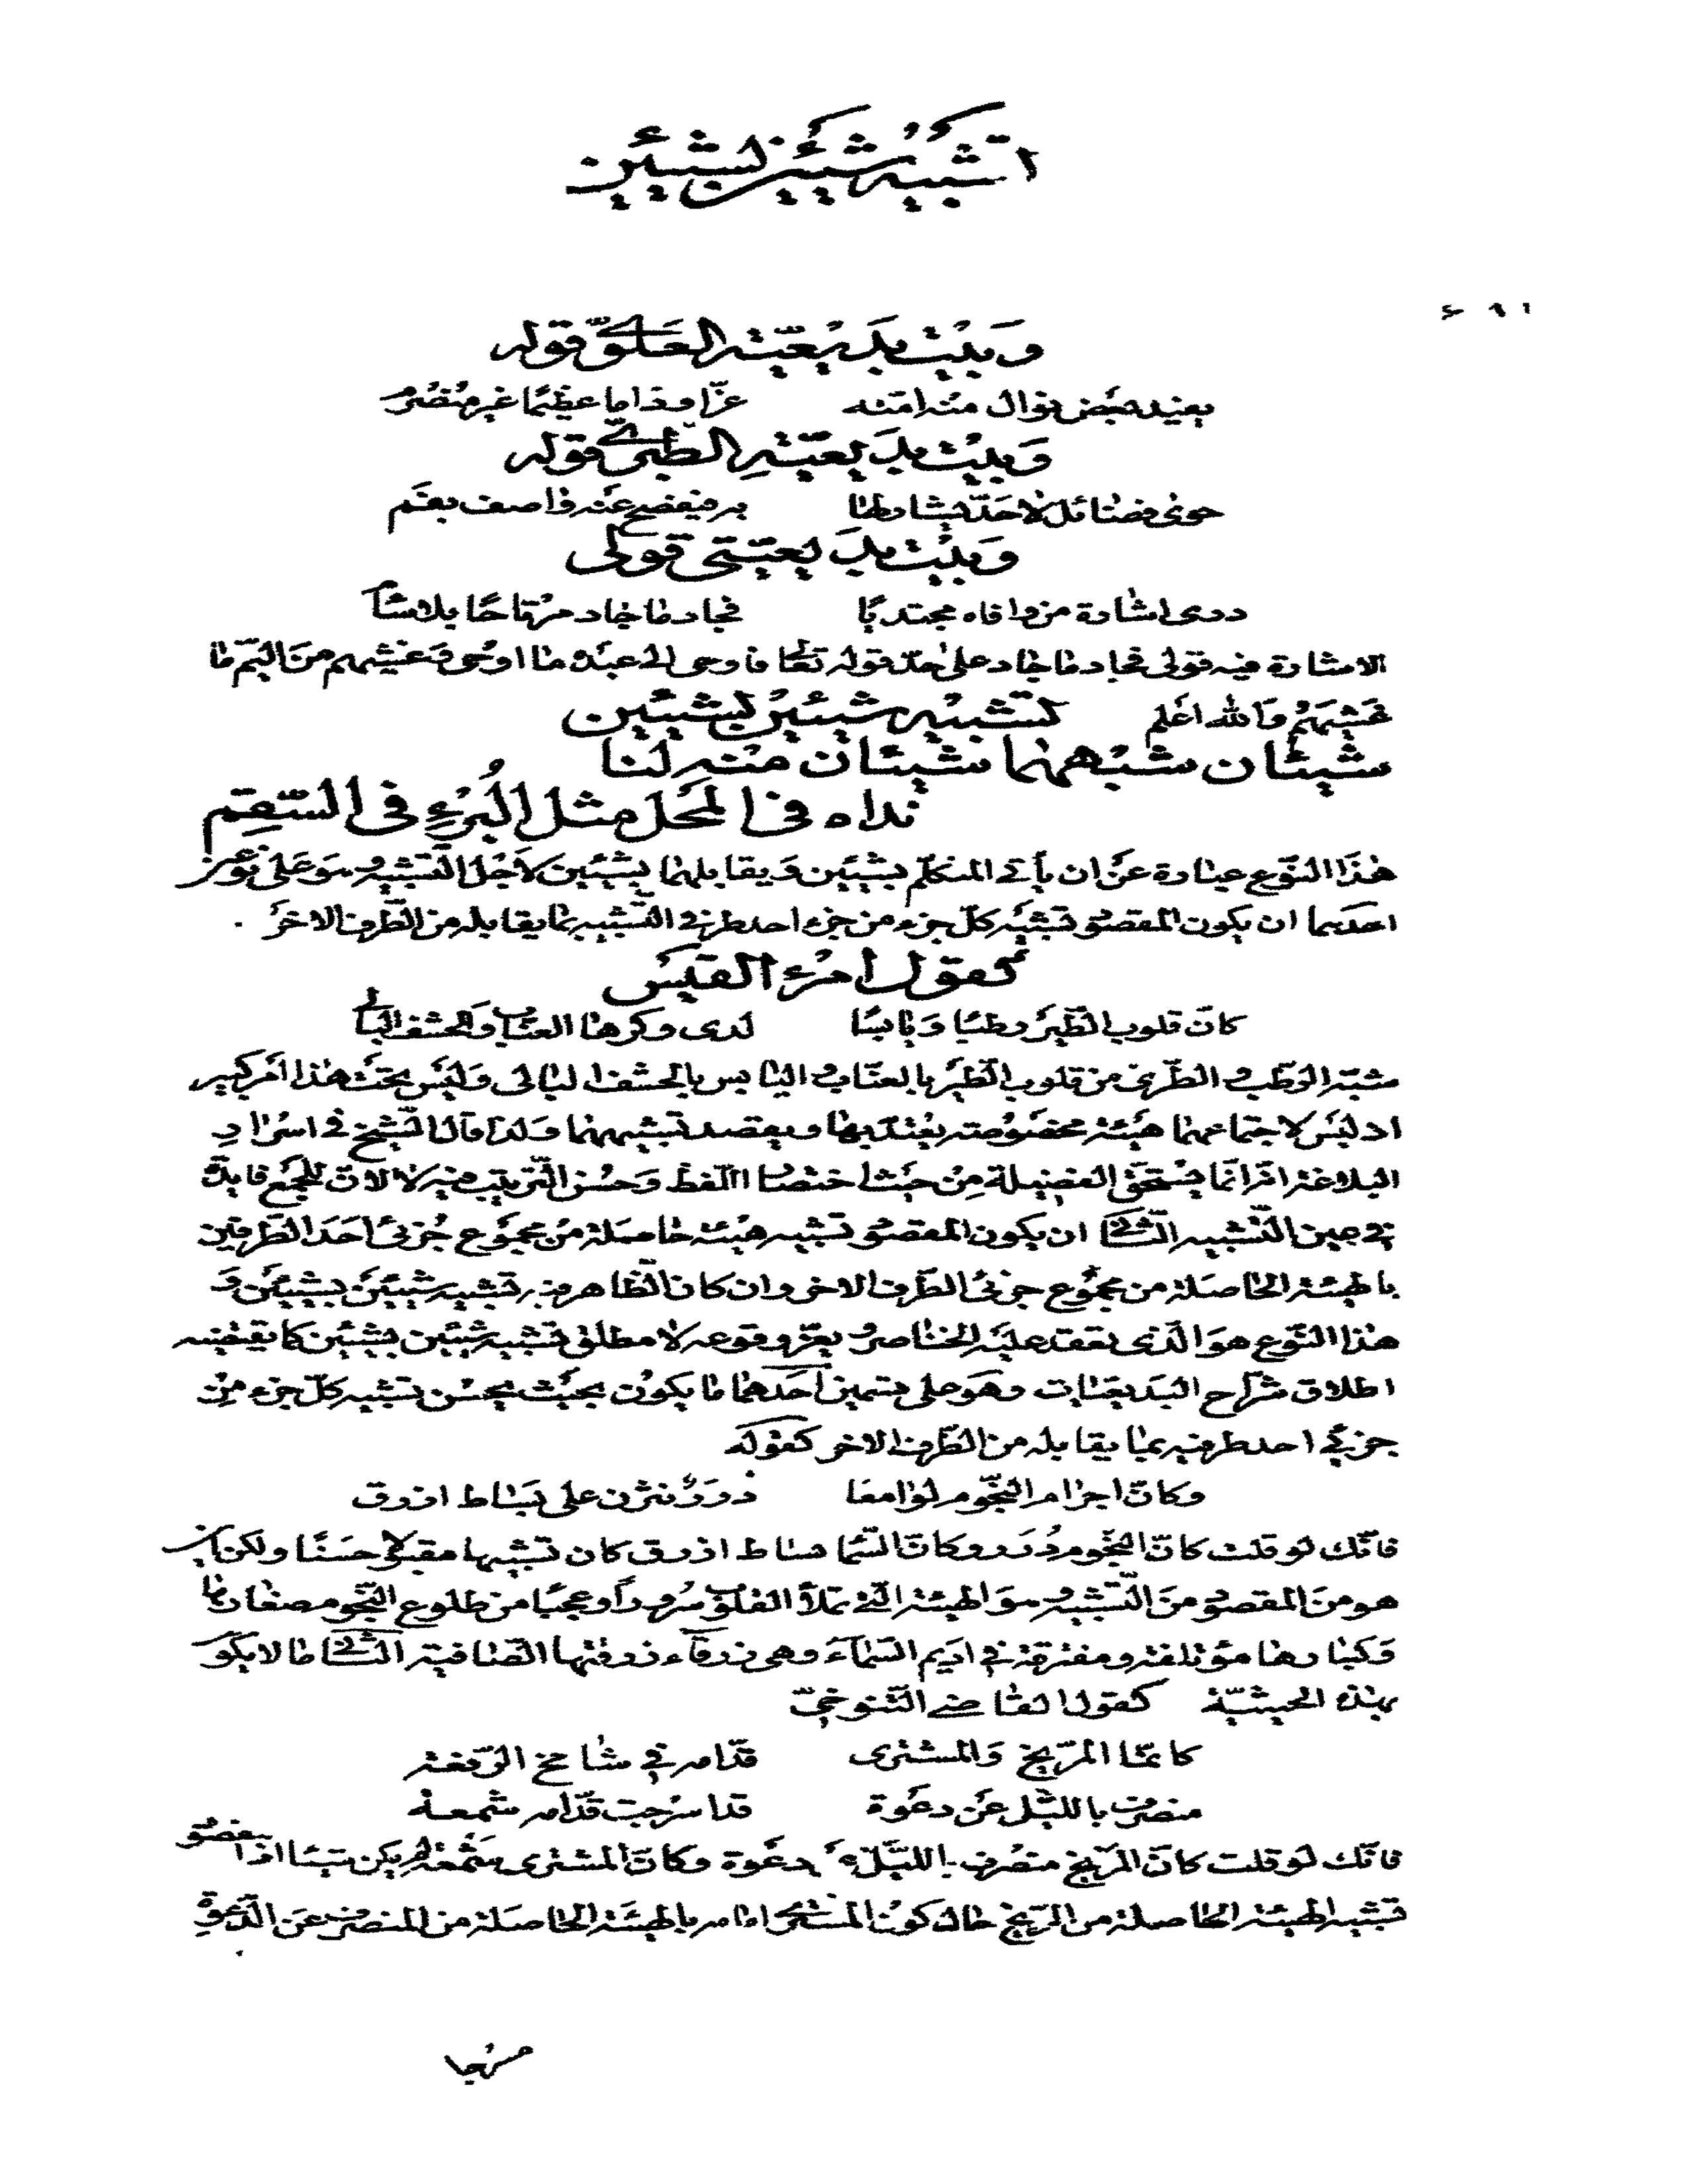 تشبيه شيئين بشيئين
وبيت بديعيته الحلي قوله
عزا وذاما عظيما غير منصرم
وبيت بديعية الطبري قوله
حوى فضائل لا حد
وبيت بديعيتي قولي
فجاد ما جاد مرتاحا بلا سأم
الاشارة فيه قولي فجاد ما جاد على حد قوله تعالى فاوحى الى عبده ما اوحى وغشيهم من اليم ما
غشيهم والله اعلم تشبيه شيئين بشيئين
شيئان شبههما شيئان منه لنا
نداه في المحل مثل البرء في السقم
هذا النوع عبارة عن ان يأتي المتكلم بشيئين ويقابلهما بشيئين لاجل التشبيه وهو على نوعين
احدهما ان يكون المقصود تشبيه كل جزء من جزء احد طرفي التشبيه بما يقابله من الطرف الاخر
كقول امرء القيس
كان قلوب الطير رطبا ويابسا لدى وكرها العناب والحشف البالي
شبه الرطب الطري من قلوب الطير بالعناب واليابس بالحشف البالي وليس تحت هذا امر كبير
اذ ليس لاجتماعهما هيئة مخصوصة يعتد بها ويقصد تشبيههما ولذا قال الشيخ في اسرار
البلاغة انه انما يستحق الفضيلة من حيث اختصار اللفظ وحسن الترتيب فيه لا لان للجمع فايدة
في عين التشبيه الثاني ان يكون المقصود تشبيه هيئة حاصلة من مجموع جزئي احد الطرفين
بالهيئة الحاصلة من مجموع جزئي الطرف الاخر وان كان الظاهر فيه تشبيه شيئين بشيئين و
هذا النوع هو الذي تعقد عليه الخناصر ويعز وقوعه لا مطلق تشبيه شيئين بشيئين كما يقتضيه
اطلاق شراح البديعيات وهو على قسمين احدهما ما يكون بحيث يحسن تشبيه كل جزء من
جزئي احد طرفيه بما يقابله من الطرف الاخر كقوله
وكان اجرام النجوم لوامعا درر نثرن على بساط ازرق
فانك لو قلت كان النجوم درر وكان السما بساط ازرق كان تشبيها مقبولا حسنا ولكن اين
هو من المقصود من التشبيه هو الهيئة التي تملأ القلوب سرورا وعجبا من طلوع النجوم صغارها
وكبارها مؤتلفة ومفترقة في اديم السماء وهي زرقاء زرقتها الصافية الثاني ما لا يكون
بهذه الحيثية كقول القاضي التنوخي
كانما المريخ والمشتري قدامه في شامخ الرفعة
منصرف بالليل عن دعوة قد اسرجت قدامه شمعة
فانك لو قلت كان المريخ منصرف بالليل عن دعوة وكان المشتري شمعة لم يكن شيئا اذ المقصود
تشبيه الهيئة الحاصلة من المريخ حال كون المشتري امامه بالهيئة الحاصلة من المنصرف عن الدعوة